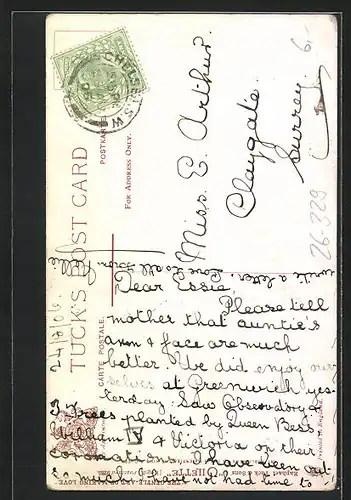 TUCK'S POST CARD
CARTE POSTALE.
POSTKARTE
FOR ADDRESS ONLY.
CHELSEA S.W.
6.-
Miss. E. Arthur.
Claygate.
Surrey.
26-329
24/8/06.
write a letter. Love to all
from
Dear Essie,
Please tell
mother that auntie's
arm & face are much
better. We did enjoy our
selves at Greenwich yes-
terday. Saw Observatory &
3 Trees planted by Queen Bess
William IV & Victoria on their
coronations. I have been out
so much what not had time to